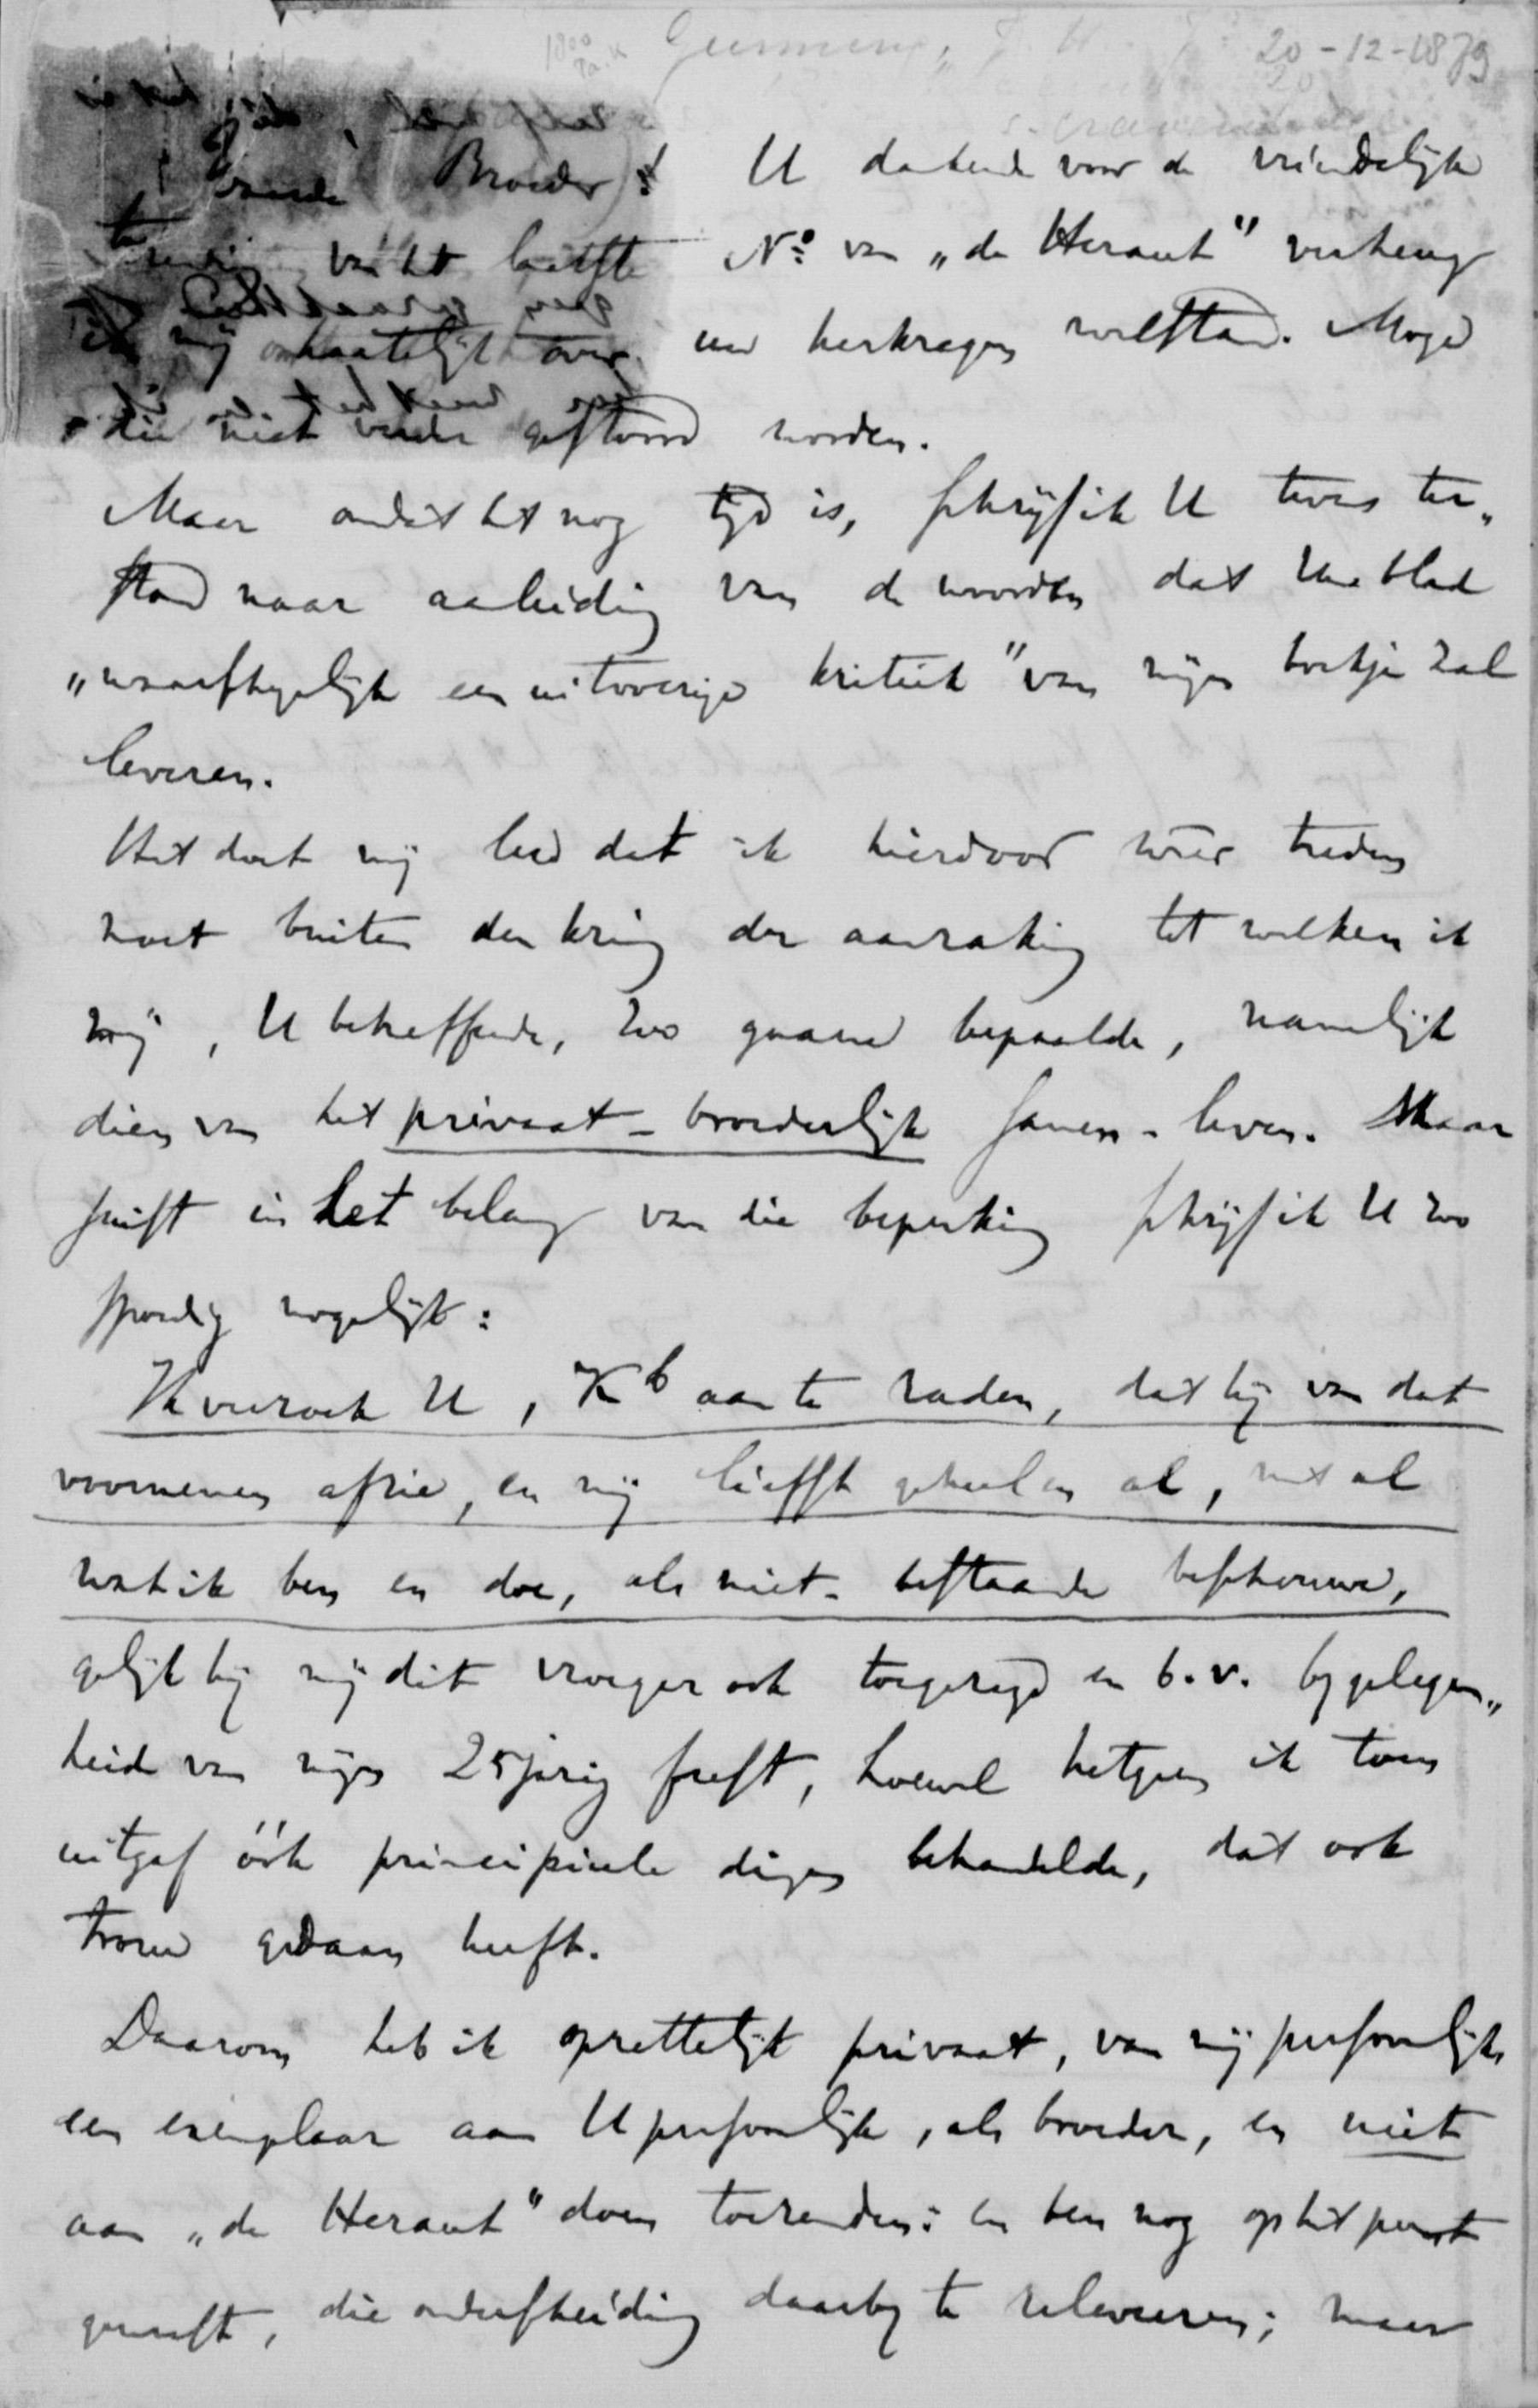 Gunning, J. H. Jr 20-12-1879
's Gravenhage
Waarde Broeder! U dankende voor de vriendelijke
toezending van het laatste No. van „de Heraut" verheug
ik mij onmiddelijk over uw herkregen welstand. Moge
die niet verder gestoord worden.
Maar omdat het nog tijd is, schrijf ik U tevens ter„
stond naar aanleiding van de woorden dat Uw blad
„waarschijnlijk een uitvoerige kritiek" van mijn boekje zal
leveren.
Het doet mij leed dat ik hierdoor weer treden
moet buiten den kring der aanraking tot welken ik
mij, U betreffende, zoo gaarne bepaalde, namelijk
dien van het privaat-broederlijk samen-leven. Maar
juist in het belang van die beperking schrijf ik U zoo
spoedig mogelijk:
Ik verzoek U, K aan te raden, dat hij van dat
voornemen afzie, en mij liefst geheel en al, met al
wat ik ben en doe, als niet-bestaande beschouwe,
gelijk hij mij dit vroeger ook toegezegd en b.v. bij gelegen„
heid van mijn 25jarig feest, hoewel hetgeen ik toen
uitgaf óók principieele dingen behandelde, dat ook
trouw gedaan heeft.
Daarom heb ik opzettelijk privaat, van mij persoonlijk
een exemplaar aan U persoonlijk, als broeder, en niet
aan „de Heraut" doen toezenden: en ben nog op het punt
geweest, die onderscheiding daarbij te releveeren; maar